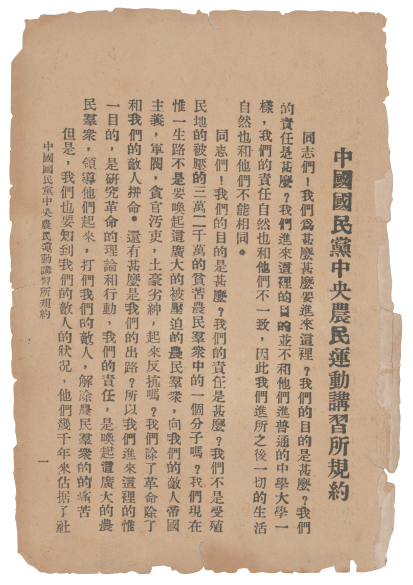 中國國民黨中央農民運動講習所規約
同志們！我們爲甚麼甚麼要進來這裡？我們的目的是甚麼？我們
的責任是甚麼？我們進來這裡的目的並不和他們進普通的中學大學一
樣，我們的責任自然也和他們不一致，因此我們進所之後一切的生活
自然也和他們不能相同。
同志們！我們的目的是甚麼？我們的責任是甚麼？我們不是受殖
民地的被壓的三萬二千萬的貧苦農民羣衆中的一個分子嗎？我們現在
惟一生路不是要喚起這廣大的被壓迫的農民羣衆，向我們的敵人帝國
主義，軍閥，貪官汚吏，土豪劣紳，起來反抗嗎？我們除了革命除了
和我們的敵人拼命。還有甚麼是我們的出路？所以我們進來這裡的惟
一目的，是研究革命的理論和行動，我們的責任，是喚起這廣大的農
民羣衆，領導他們起來，打們我們的敵人，解除農民羣衆的的痛苦
但是，我們也要知到我們的敵人的狀况，他們幾千年來佔据了社
中國國民黨中央農民運動講習所規約
一